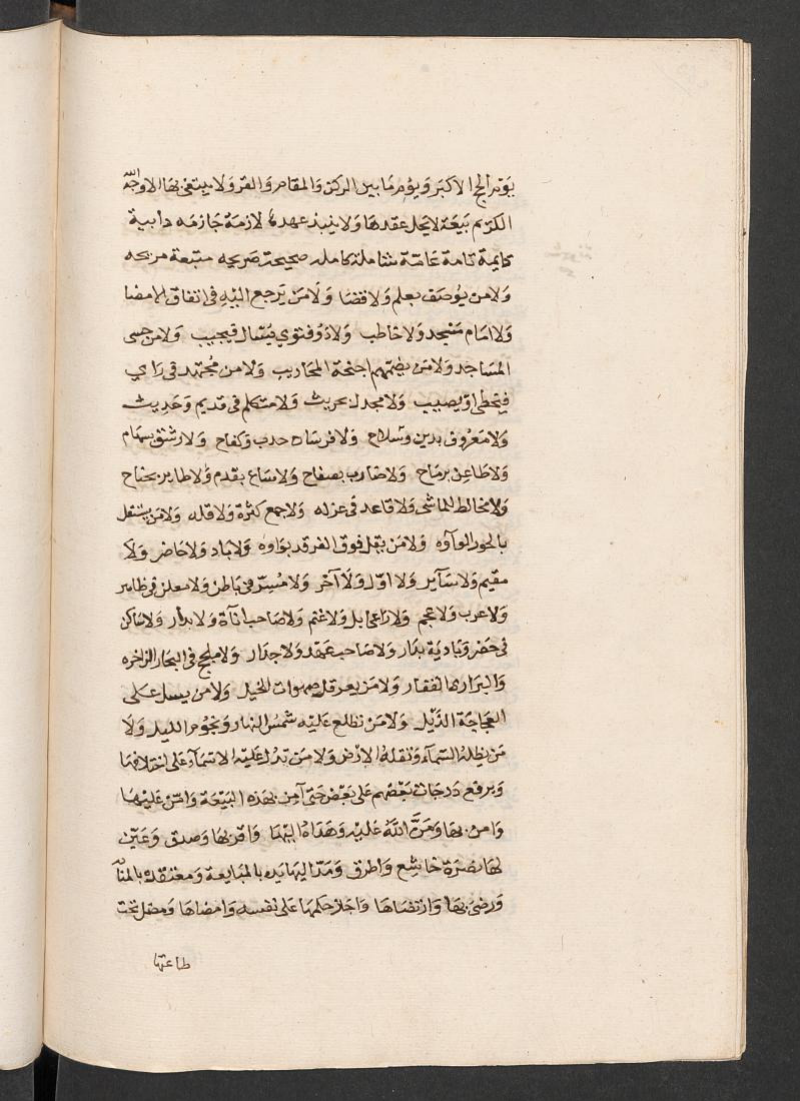 يوم الحج الاكبر ويؤم ما بين الركن والمقام والقر ولا يبتغى بها الا وجه الله
الكريم بيعة لا يحل عقدها ولا ينبذ عهدها لازمة جازمه دايية
قايمة تامة عامة شاملة كامله صحيحة صريحه متبعة مريحه
ولا من يوصف بعلم ولا قضا ولا من يرجع اليه فى اتفاق ولا امضا
ولا امام مسجد ولا خاطب ولا ذو فتوى يسال فيجيب ولا من حسى
المساجد ولا من يضمهم اجنحة المحاريب ولا من مجتهد فى راى
فيخطى او يصيب ولا مجدل بحريث ولا متكلم فى قديم وحديث
ولا معروف بدين وسلاح ولا فرسان حرب وكفاح ولا رشق بسهام
ولا طاعن برماح ولا ضارب بصفاح ولا ساع بقدم ولا طاير بجناح
ولا مخالط للماشى ولا قاعد فى عزله ولا جمع كثرة ولا قله ولا من يستقل
بالجور لواوه ولا من يقل فوق الفرقد بواوه ولا باد ولا حاضر ولا
مقيم ولا ساير ولا اول ولا آخر ولا مسر فى باطن ولا معلن فى ظاهر
ولا عرب ولا عجم ولا راعى ابل ولا غنم ولا صاحب اناة ولا بدار ولا ساكن
فى حضر وبادية بدار ولا صاحب عمد ولا جدار ولا ملجج فى البحار الزاخره
والبرارى القفار ولا من يعرقل صهوات الخيل ولا من يسبل على
العجاجة الذيل ولا من تطلع عليه شمس النهار ونجوم الليل ولا
من تظله السماء وتقله الارض ولا من تدل عليه الاسماء على اختلافها
ويرفع درجات بعضهم على بعض حتى آمن بهذه البيعة وامن عليها
وامن بها ومن الله عليه وهداه اليها واقر بها وصدق وعين
لها بصرة خاشع واطرق ومد اليها يده بالمبايعة ومعتقده بالمتا
ورضى بها وارتضاها واجاز حكمها على نفسه وامضاها ومضل تحت
طاعتها